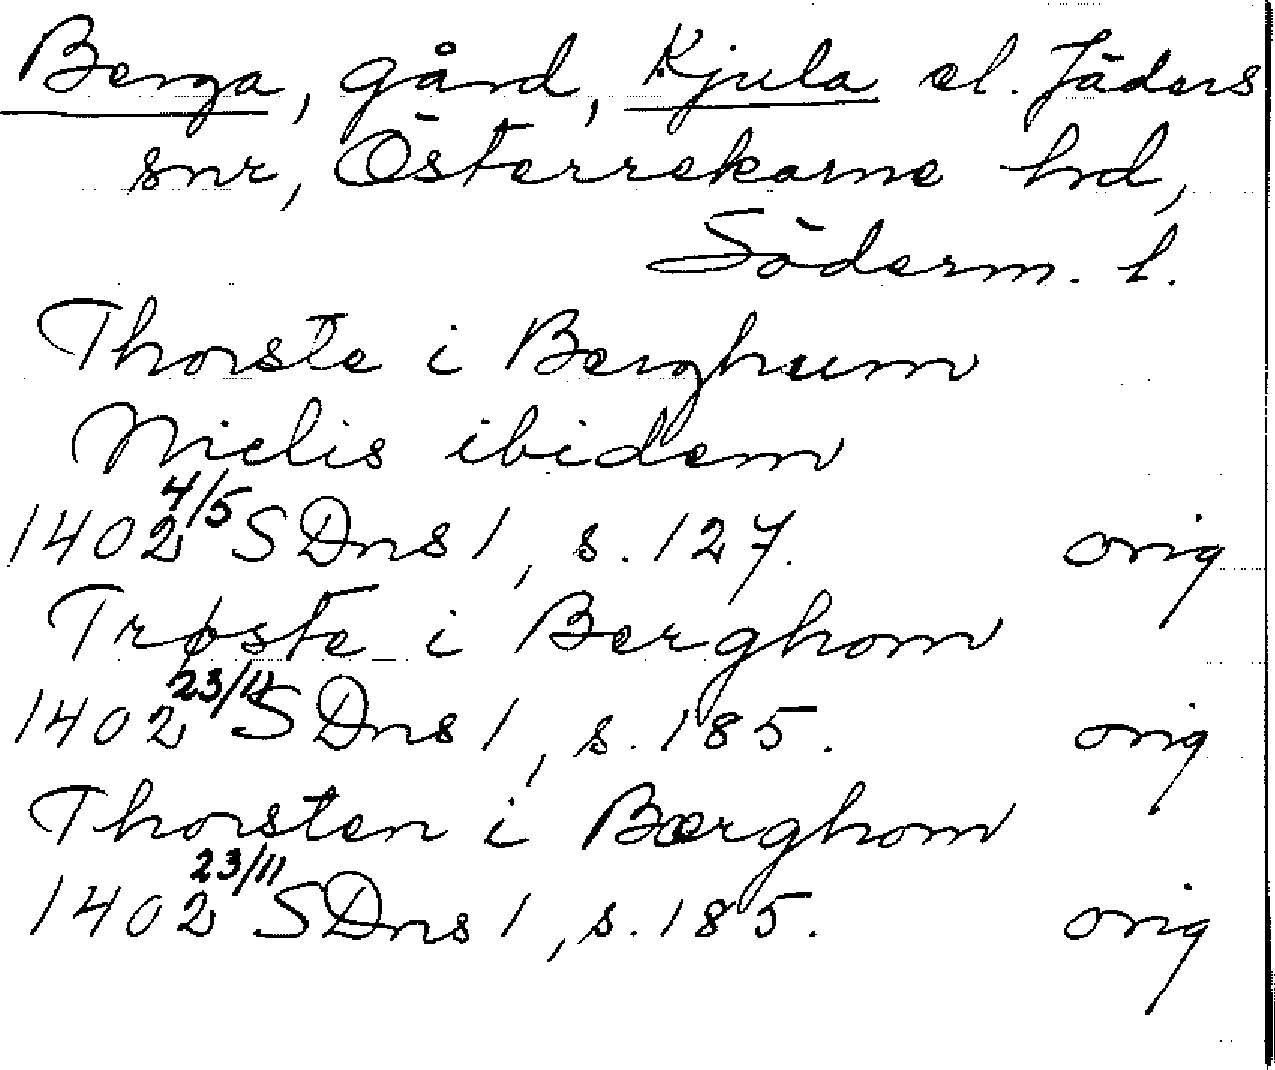 Berga, gård, Kjula el. Jäders
snr, Österrekarne hd,
Söderm. l.
Thorste i Berghum
Niclis ibidem
1402 4/5 SDns 1, s. 127. orig
Trøste i Berghom
1402 23/11 SDns 1, s. 185. orig
Thorsten i Bærghom
1402 23/11 SDns 1, s. 185. orig